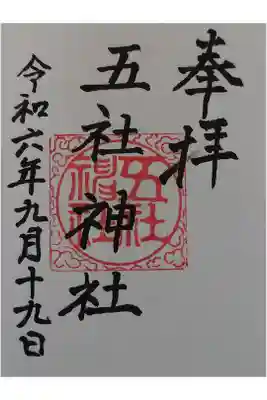 奉拝
五社神社
令和六年九月十九日
五社神社